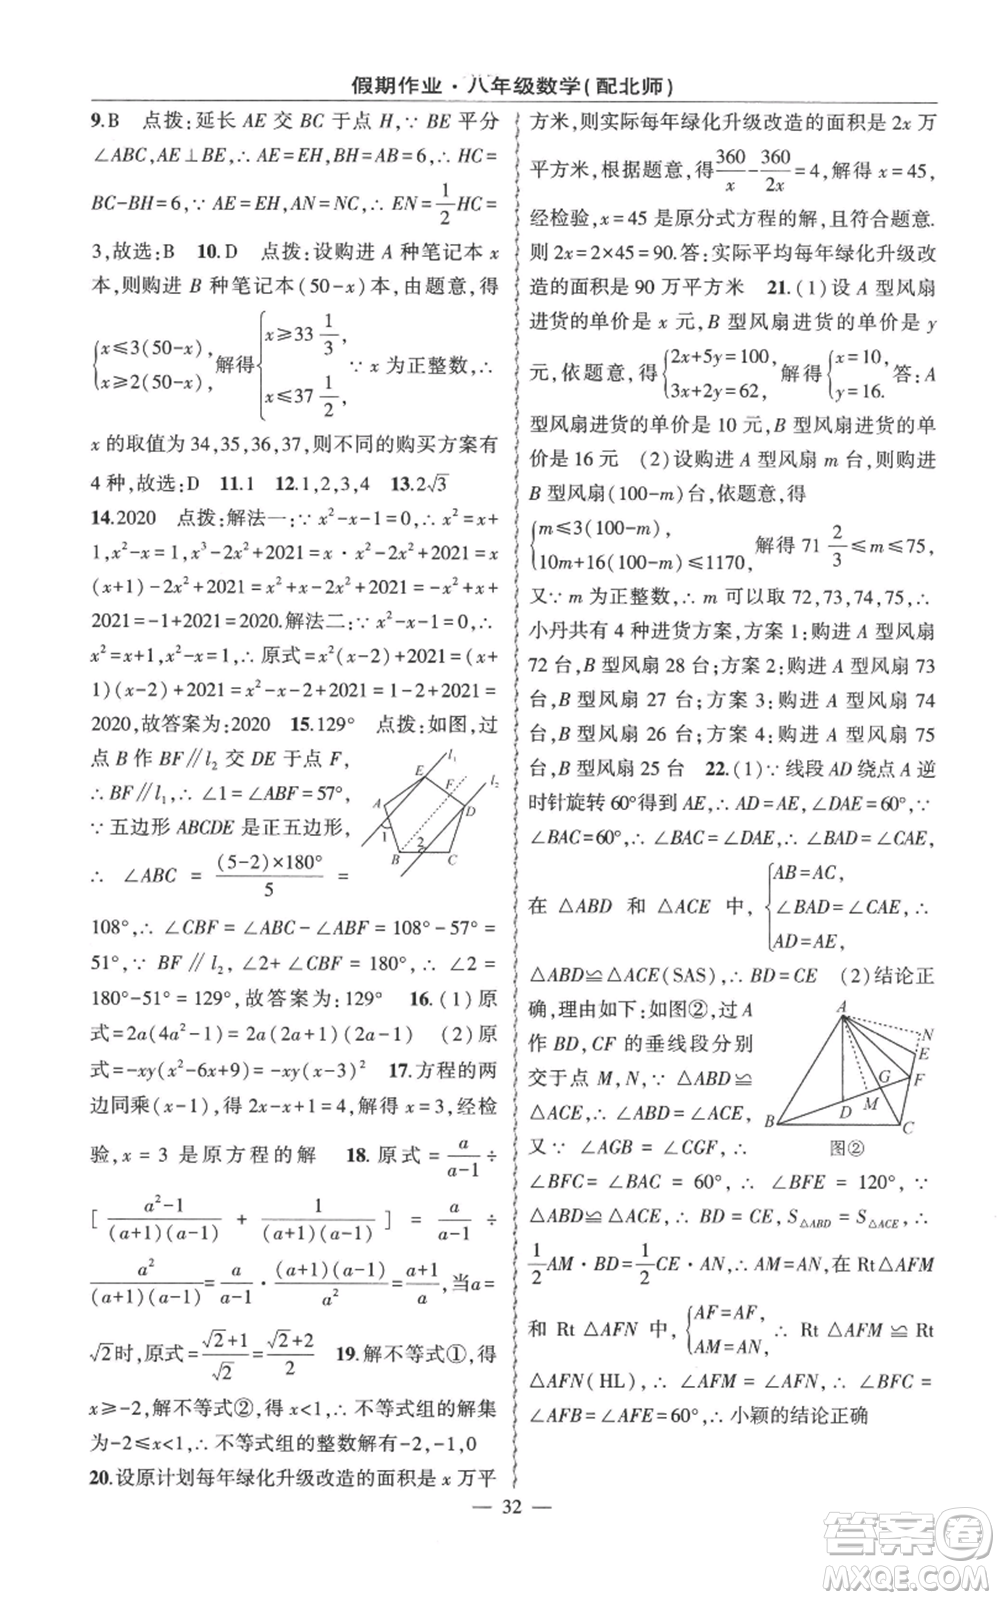 假期作业·八年级数学(配北师)
9.B 点拨:延长 AE 交 BC 于点 H,∵ BE 平分
∠ABC,AE⊥BE,∴ AE=EH,BH=AB=6,∴ HC=
BC-BH=6,∵ AE=EH,AN=NC,∴ EN=1/2 HC=
3,故选:B 10.D 点拨:设购进 A 种笔记本 x
本,则购进 B 种笔记本(50-x)本,由题意,得
{x≤3(50-x), x≥2(50-x), 解得{x≥33 1/3, x≤37 1/2, ∵ x 为正整数,∴
x 的取值为 34,35,36,37,则不同的购买方案有
4 种,故选:D 11.1 12.1,2,3,4 13.2√3
14.2020 点拨:解法一:∵ x²-x-1=0,∴ x²=x+
1,x²-x=1,x³-2x²+2021=x·x²-2x²+2021=x
(x+1)-2x²+2021=x²+x-2x²+2021=-x²+x+
2021=-1+2021=2020.解法二:∵ x²-x-1=0,∴
x²=x+1,x²-x=1,∴ 原式=x²(x-2)+2021=(x+
1)(x-2)+2021=x²-x-2+2021=1-2+2021=
2020,故答案为:2020 15.129° 点拨:如图,过
点 B 作 BF∥l₂ 交 DE 于点 F,
∴ BF∥l₁,∴ ∠1=∠ABF=57°,
∵ 五边形 ABCDE 是正五边形,
∴ ∠ABC = (5-2)×180°/5 =
l₁
E
F
l₂
A
D
1
2
B
C
108°,∴ ∠CBF = ∠ABC - ∠ABF = 108° - 57° =
51°,∵ BF∥l₂,∠2+∠CBF=180°,∴ ∠2=
180°-51°=129°,故答案为:129° 16.(1)原
式=2a(4a²-1)=2a(2a+1)(2a-1) (2)原
式=-xy(x²-6x+9)=-xy(x-3)² 17.方程的两
边同乘(x-1),得 2x-x+1=4,解得 x=3,经检
验,x=3 是原方程的解 18.原式= a/(a-1) ÷
[ (a²-1)/((a+1)(a-1)) + 1/((a+1)(a-1)) ] = a/(a-1) ÷
a²/((a+1)(a-1)) = a/(a-1) · (a+1)(a-1)/a² = (a+1)/a,当 a=
√2时,原式= (√2+1)/√2 = (√2+2)/2 19.解不等式①,得
x≥-2,解不等式②,得 x<1,∴ 不等式组的解集
为-2≤x<1,∴ 不等式组的整数解有-2,-1,0
20.设原计划每年绿化升级改造的面积是 x 万平
方米,则实际每年绿化升级改造的面积是 2x 万
平方米,根据题意,得 360/x - 360/2x =4,解得 x=45,
经检验,x=45 是原分式方程的解,且符合题意.
则 2x=2×45=90.答:实际平均每年绿化升级改
造的面积是 90 万平方米 21.(1)设 A 型风扇
进货的单价是 x 元,B 型风扇进货的单价是 y
元,依题意,得{2x+5y=100, 3x+2y=62, 解得{x=10, y=16. 答:A
型风扇进货的单价是 10 元,B 型风扇进货的单
价是 16 元 (2)设购进 A 型风扇 m 台,则购进
B 型风扇(100-m)台,依题意,得
{m≤3(100-m), 10m+16(100-m)≤1170, 解得 71 2/3 ≤m≤75,
又∵ m 为正整数,∴ m 可以取 72,73,74,75,∴
小丹共有 4 种进货方案,方案 1:购进 A 型风扇
72 台,B 型风扇 28 台;方案 2:购进 A 型风扇 73
台,B 型风扇 27 台;方案 3:购进 A 型风扇 74
台,B 型风扇 26 台;方案 4:购进 A 型风扇 75
台,B 型风扇 25 台 22.(1)∵ 线段 AD 绕点 A 逆
时针旋转 60°得到 AE,∴ AD=AE,∠DAE=60°,∵
∠BAC=60°,∴ ∠BAC=∠DAE,∴ ∠BAD=∠CAE,
在 △ABD 和 △ACE 中,{AB=AC, ∠BAD=∠CAE, AD=AE, ∴
△ABD≌△ACE(SAS),∴ BD=CE (2)结论正
确,理由如下:如图②,过 A
作 BD,CF 的垂线段分别
交于点 M,N,∵ △ABD≌
△ACE,∴ ∠ABD=∠ACE,
又∵ ∠AGB=∠CGF,∴
A
N
E
G
F
D
M
B
C
图②
∠BFC = ∠BAC = 60°,∴ ∠BFE = 120°,∵
△ABD≌△ACE,∴ BD=CE,S△ABD=S△ACE,∴
1/2 AM·BD=1/2 CE·AN,∴ AM=AN,在 Rt△AFM
和 Rt △AFN 中,{AF=AF, AM=AN, ∴ Rt △AFM ≌ Rt
△AFN(HL),∴ ∠AFM = ∠AFN,∴ ∠BFC =
∠AFB=∠AFE=60°,∴ 小颖的结论正确
— 32 —
答案圈
MXQE.COM